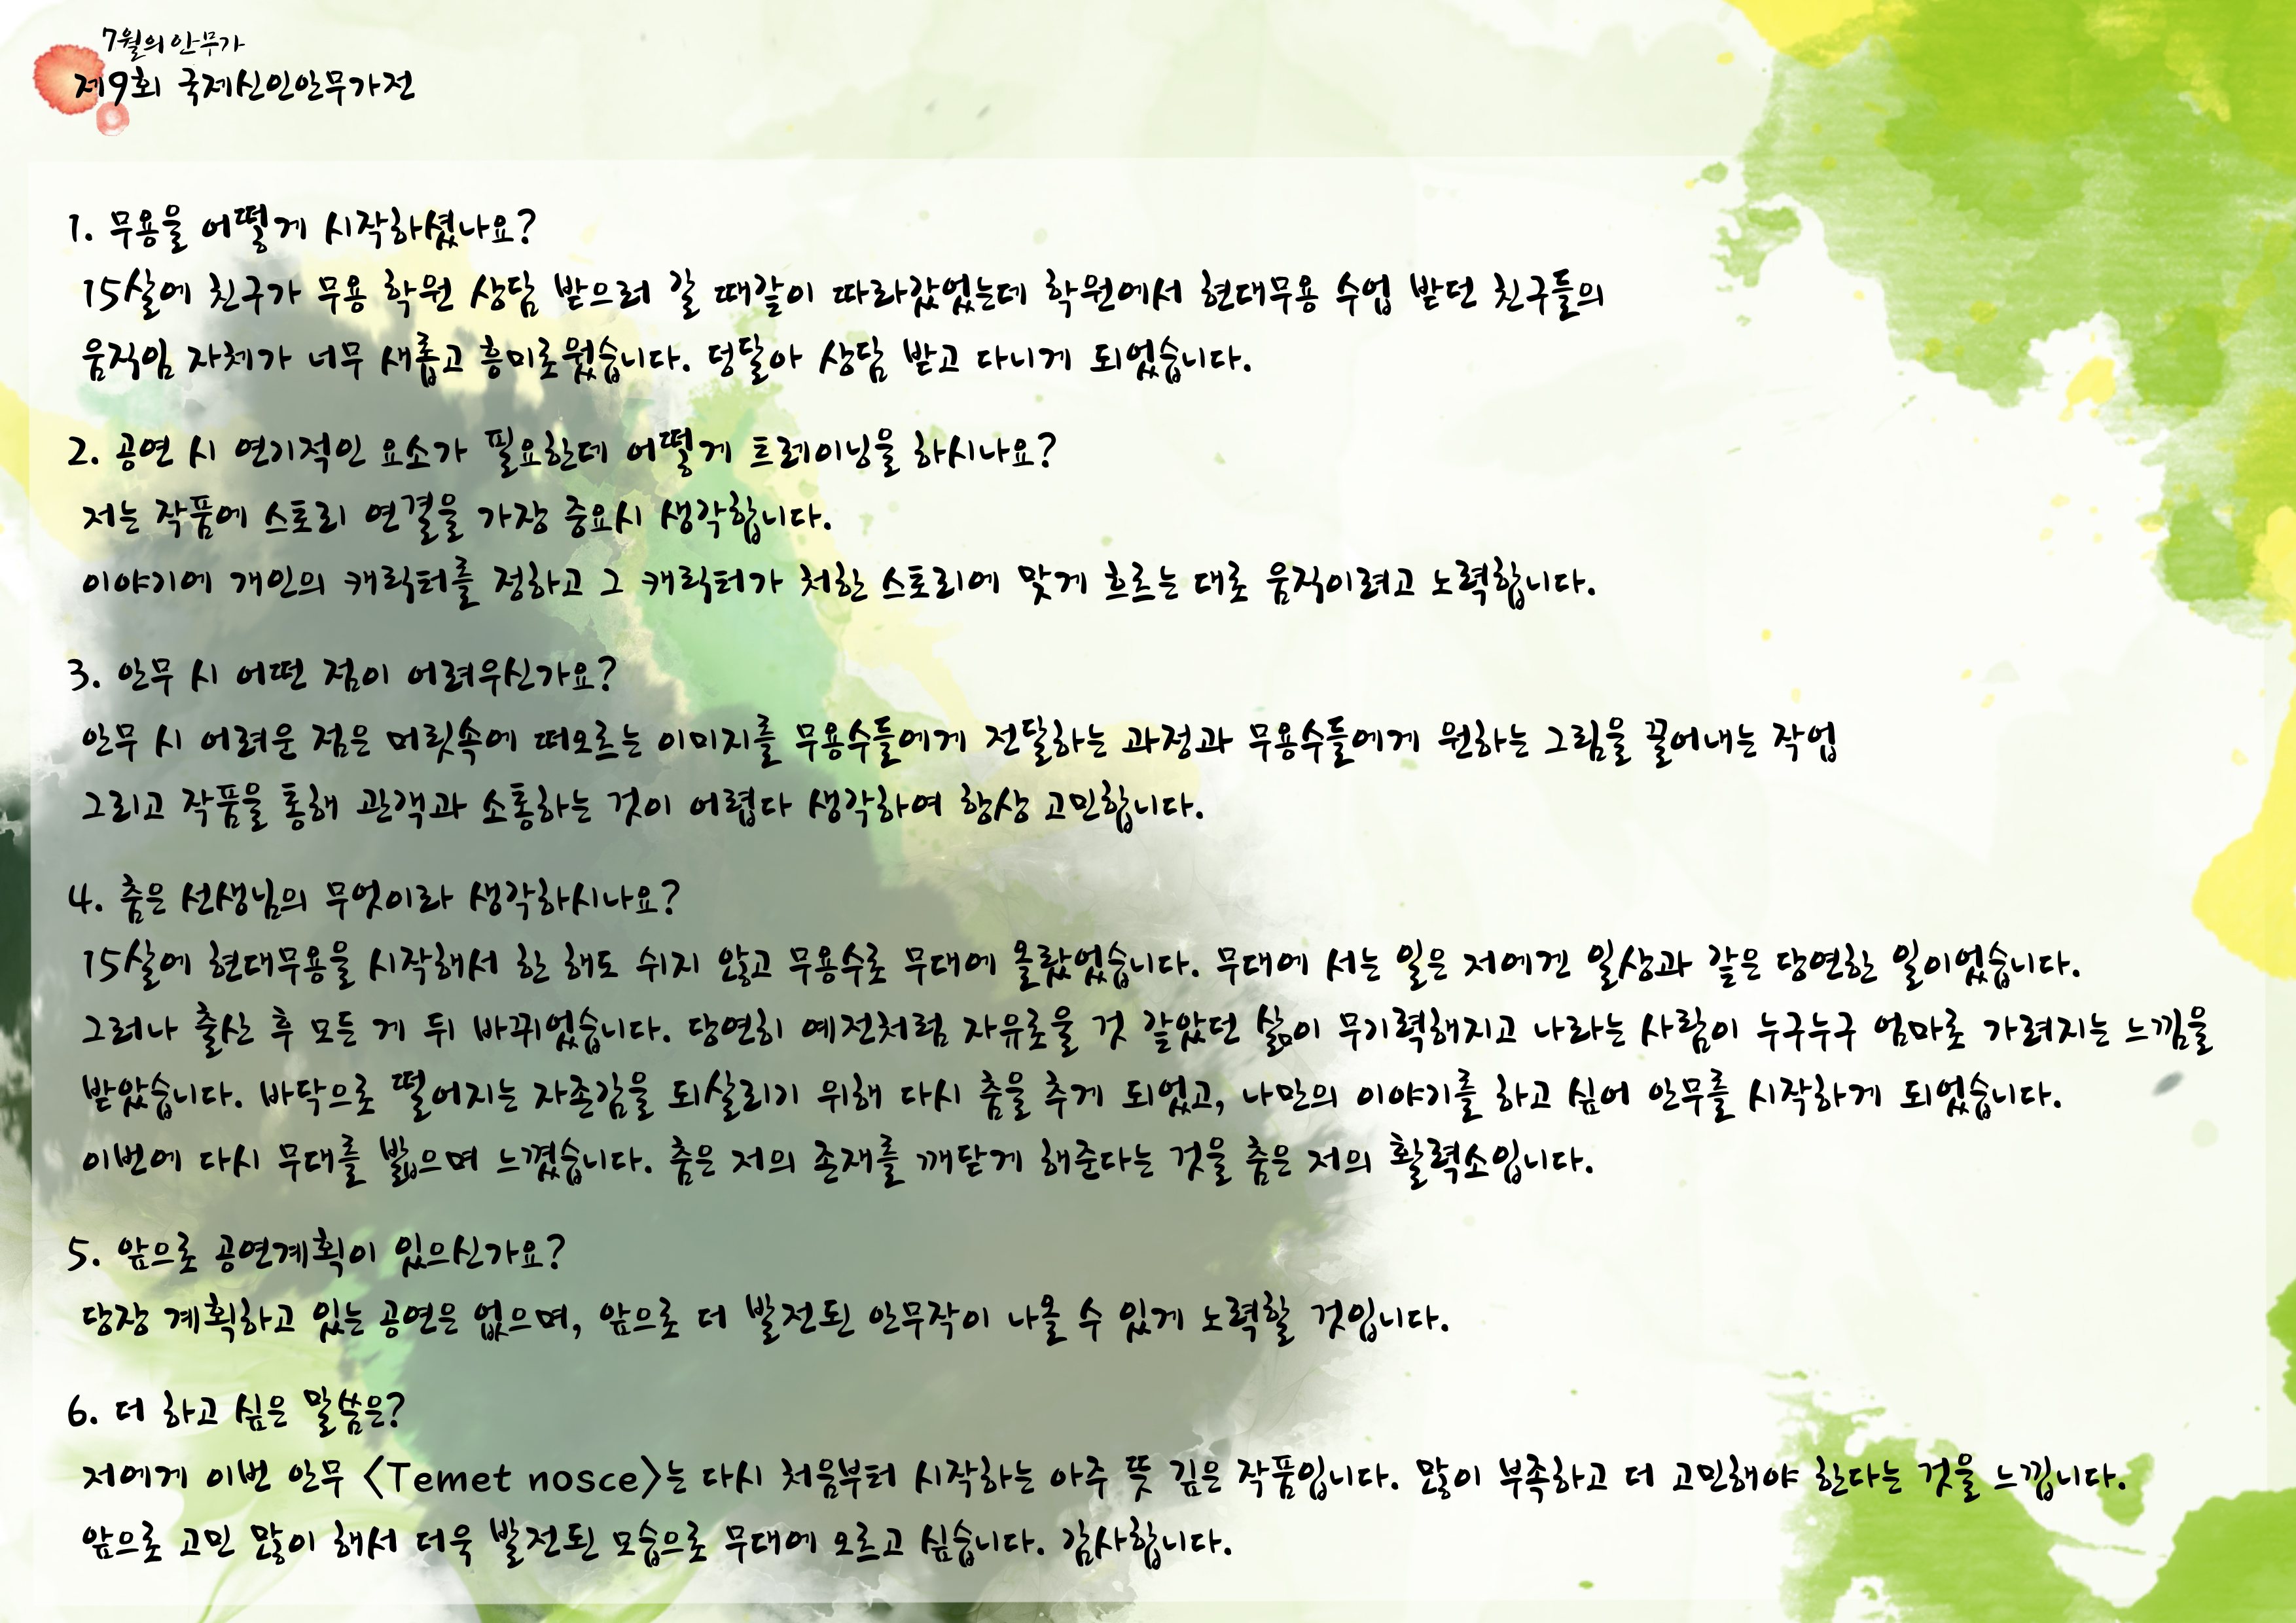 7월의 안무가
제9회 국제신인안무가전
1. 무용을 어떻게 시작하셨나요?
15살에 친구가 무용 학원 상담 받으러 갈 때같이 따라갔었는데 학원에서 현대무용 수업 받던 친구들의
움직임 자체가 너무 새롭고 흥미로웠습니다. 덩달아 상담 받고 다니게 되었습니다.
2. 공연 시 연기적인 요소가 필요한데 어떻게 트레이닝을 하시나요?
저는 작품에 스토리 연결을 가장 중요시 생각합니다.
이야기에 개인의 캐릭터를 정하고 그 캐릭터가 처한 스토리에 맞게 흐르는 대로 움직이려고 노력합니다.
3. 안무 시 어떤 점이 어려우신가요?
안무 시 어려운 점은 머릿속에 떠오르는 이미지를 무용수들에게 전달하는 과정과 무용수들에게 원하는 그림을 끌어내는 작업
그리고 작품을 통해 관객과 소통하는 것이 어렵다 생각하여 항상 고민합니다.
4. 춤은 선생님의 무엇이라 생각하시나요?
15살에 현대무용을 시작해서 한 해도 쉬지 않고 무용수로 무대에 올랐었습니다. 무대에 서는 일은 저에겐 일상과 같은 당연한 일이었습니다.
그러나 출산 후 모든 게 뒤 바뀌었습니다. 당연히 예전처럼 자유로울 것 같았던 삶이 무기력해지고 나라는 사람이 누구누구 엄마로 가려지는 느낌을
받았습니다. 바닥으로 떨어지는 자존감을 되살리기 위해 다시 춤을 추게 되었고, 나만의 이야기를 하고 싶어 안무를 시작하게 되었습니다.
이번에 다시 무대를 밟으며 느꼈습니다. 춤은 저의 존재를 깨닫게 해준다는 것을 춤은 저의 활력소입니다.
5. 앞으로 공연계획이 있으신가요?
당장 계획하고 있는 공연은 없으며, 앞으로 더 발전된 안무작이 나올 수 있게 노력할 것입니다.
6. 더 하고 싶은 말씀은?
저에게 이번 안무 <Temet nosce>는 다시 처음부터 시작하는 아주 뜻 깊은 작품입니다. 많이 부족하고 더 고민해야 한다는 것을 느낍니다.
앞으로 고민 많이 해서 더욱 발전된 모습으로 무대에 오르고 싶습니다. 감사합니다.